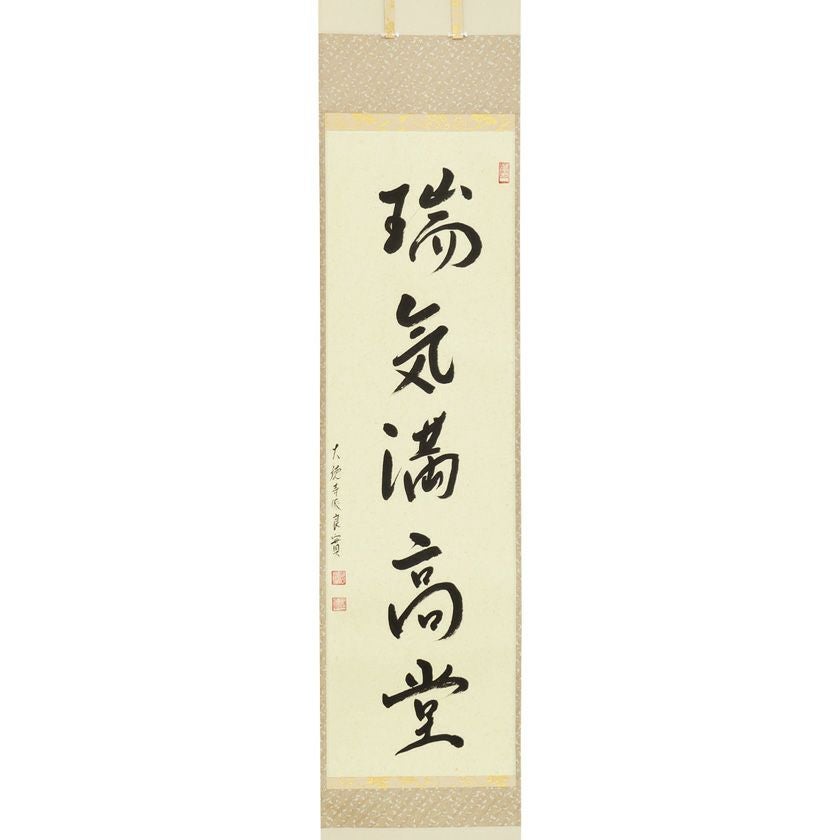 瑞気満高堂
大徳寺派良實